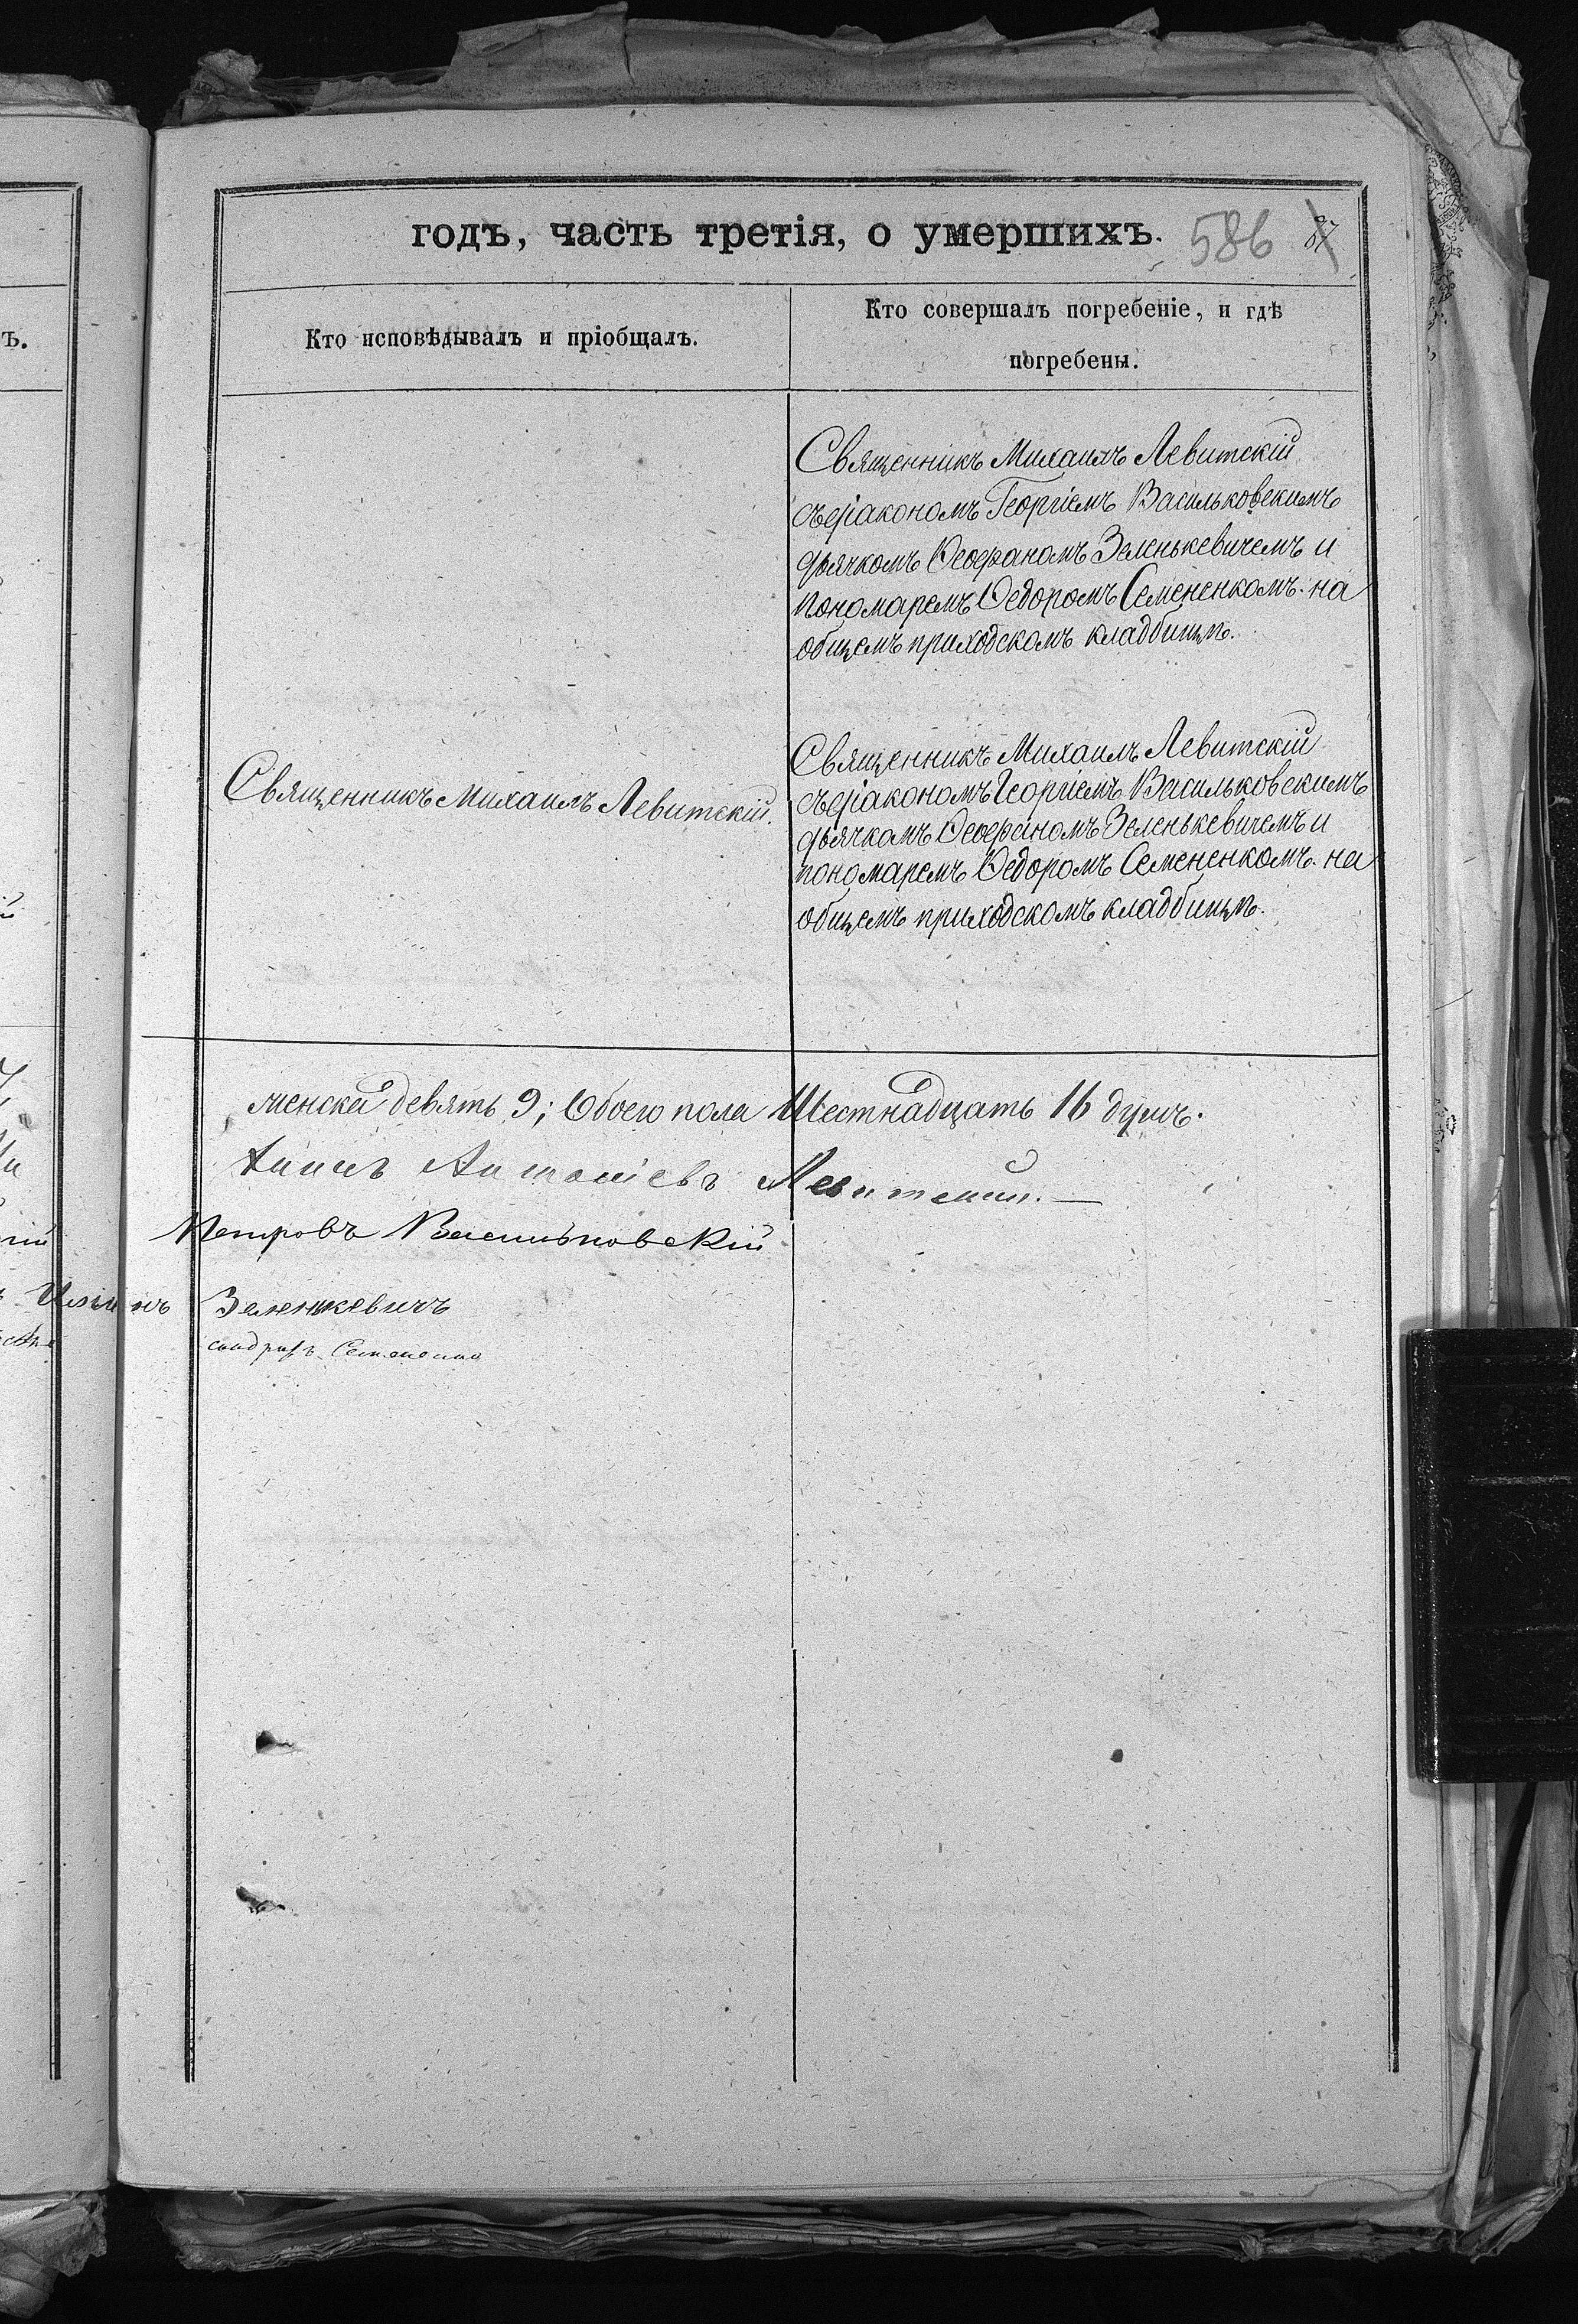 годъ, часть третія, о умершихъ. 586 87
Кто исповѣдывалъ и пріобщалъ.
Кто совершалъ погребеніе, и гдѣ
погребены.
ъ.
Священникъ Михаилъ Левитскій
съ діакономъ Георгіемъ Васильковскимъ
дьячкомъ Ѳеофаномъ Зеленькевичемъ и
пономаремъ Ѳедоромъ Семененкомъ. на
общемъ приходскомъ кладбищѣ.
Священникъ Михаилъ Левитскій.
Священникъ Михаилъ Левитскій
съ діакономъ Георгіемъ Васильковскимъ
дьячкомъ Ѳеофаномъ Зеленькевичемъ и
пономаремъ Ѳедоромъ Семененкомъ. на
общемъ приходскомъ кладбищѣ.
женска девять 9; Обоего пола Шестнадцать 16 душъ.
Левитскій.
Петровъ Васильковскій
Зеленькевичъ
Семененко